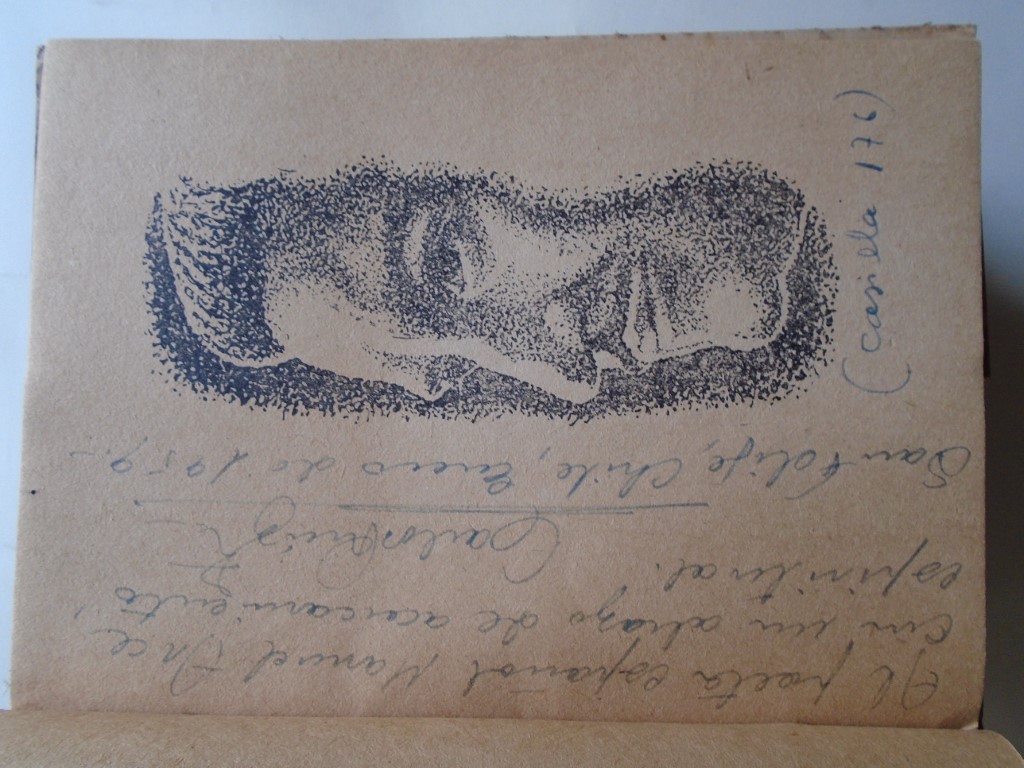 Al poeta español Manuel Arce
con un abrazo de acercamiento
espiritual.
Carlos Ruiz
San Felipe, Chile, Enero de 1959.-
(Casilla 176)